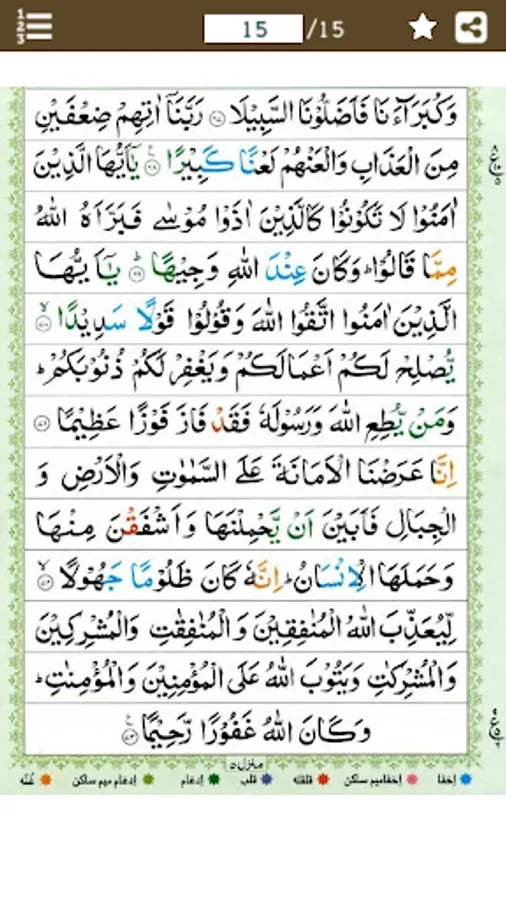 15 /15
وَكُبَرَآءَنَا فَاَضَلُّوْنَا السَّبِيْلَا ﴿۶۷﴾ رَبَّنَآ اٰتِهِمْ ضِعْفَيْنِ
مِنَ الْعَذَابِ وَالْعَنْهُمْ لَعْنًا كَبِيْرًا ﴿۶۸﴾ يٰٓاَيُّهَا الَّذِيْنَ
اٰمَنُوْا لَا تَكُوْنُوْا كَالَّذِيْنَ اٰذَوْا مُوْسٰى فَبَرَّاَهُ اللّٰهُ
مِمَّا قَالُوْا ؕ وَكَانَ عِنْدَ اللّٰهِ وَجِيْهًا ﴿۶۹﴾ يٰٓاَيُّهَا
الَّذِيْنَ اٰمَنُوا اتَّقُوا اللّٰهَ وَقُوْلُوْا قَوْلًا سَدِيْدًا ﴿۷۰﴾
يُّصْلِحْ لَكُمْ اَعْمَالَكُمْ وَيَغْفِرْ لَكُمْ ذُنُوْبَكُمْ ؕ
وَمَنْ يُّطِعِ اللّٰهَ وَرَسُوْلَهٗ فَقَدْ فَازَ فَوْزًا عَظِيْمًا ﴿۷۱﴾
اِنَّا عَرَضْنَا الْاَمَانَةَ عَلَى السَّمٰوٰتِ وَالْاَرْضِ وَ
الْجِبَالِ فَاَبَيْنَ اَنْ يَّحْمِلْنَهَا وَاَشْفَقْنَ مِنْهَا
وَحَمَلَهَا الْاِنْسَانُ ؕ اِنَّهٗ كَانَ ظَلُوْمًا جَهُوْلًا ﴿۷۲﴾
لِّيُعَذِّبَ اللّٰهُ الْمُنٰفِقِيْنَ وَالْمُنٰفِقٰتِ وَالْمُشْرِكِيْنَ
وَالْمُشْرِكٰتِ وَيَتُوْبَ اللّٰهُ عَلَى الْمُؤْمِنِيْنَ وَالْمُؤْمِنٰتِ ؕ
وَكَانَ اللّٰهُ غَفُوْرًا رَّحِيْمًا ﴿۷۳﴾
منزل ۵
اِخفا اِخفامیم ساکن قلقله قلب اِدغام اِدغام میم ساکن غُنّه